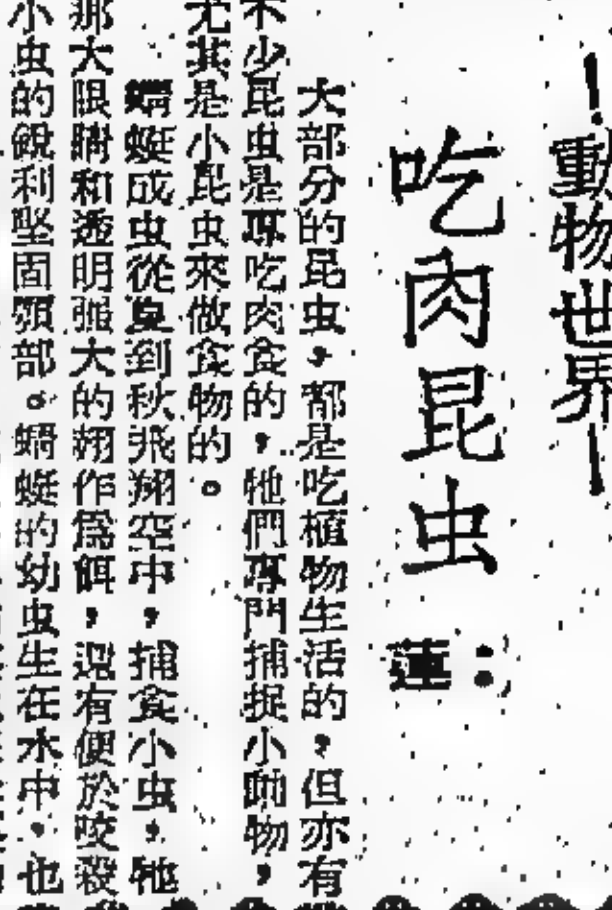 —動物世界—
吃肉昆虫
蓮：
大部分的昆虫，都是吃植物生活的，但亦有
不少昆虫是專吃肉食的，牠們專門捕捉小動物，
尤其是小昆虫來做食物的。
蜻蜓成虫從夏到秋飛翔空中，捕食小虫，牠
那大眼睛和透明强大的翅作爲餌，還有便於咬殺
小虫的銳利堅固顎部。蜻蜓的幼虫生在水中，也